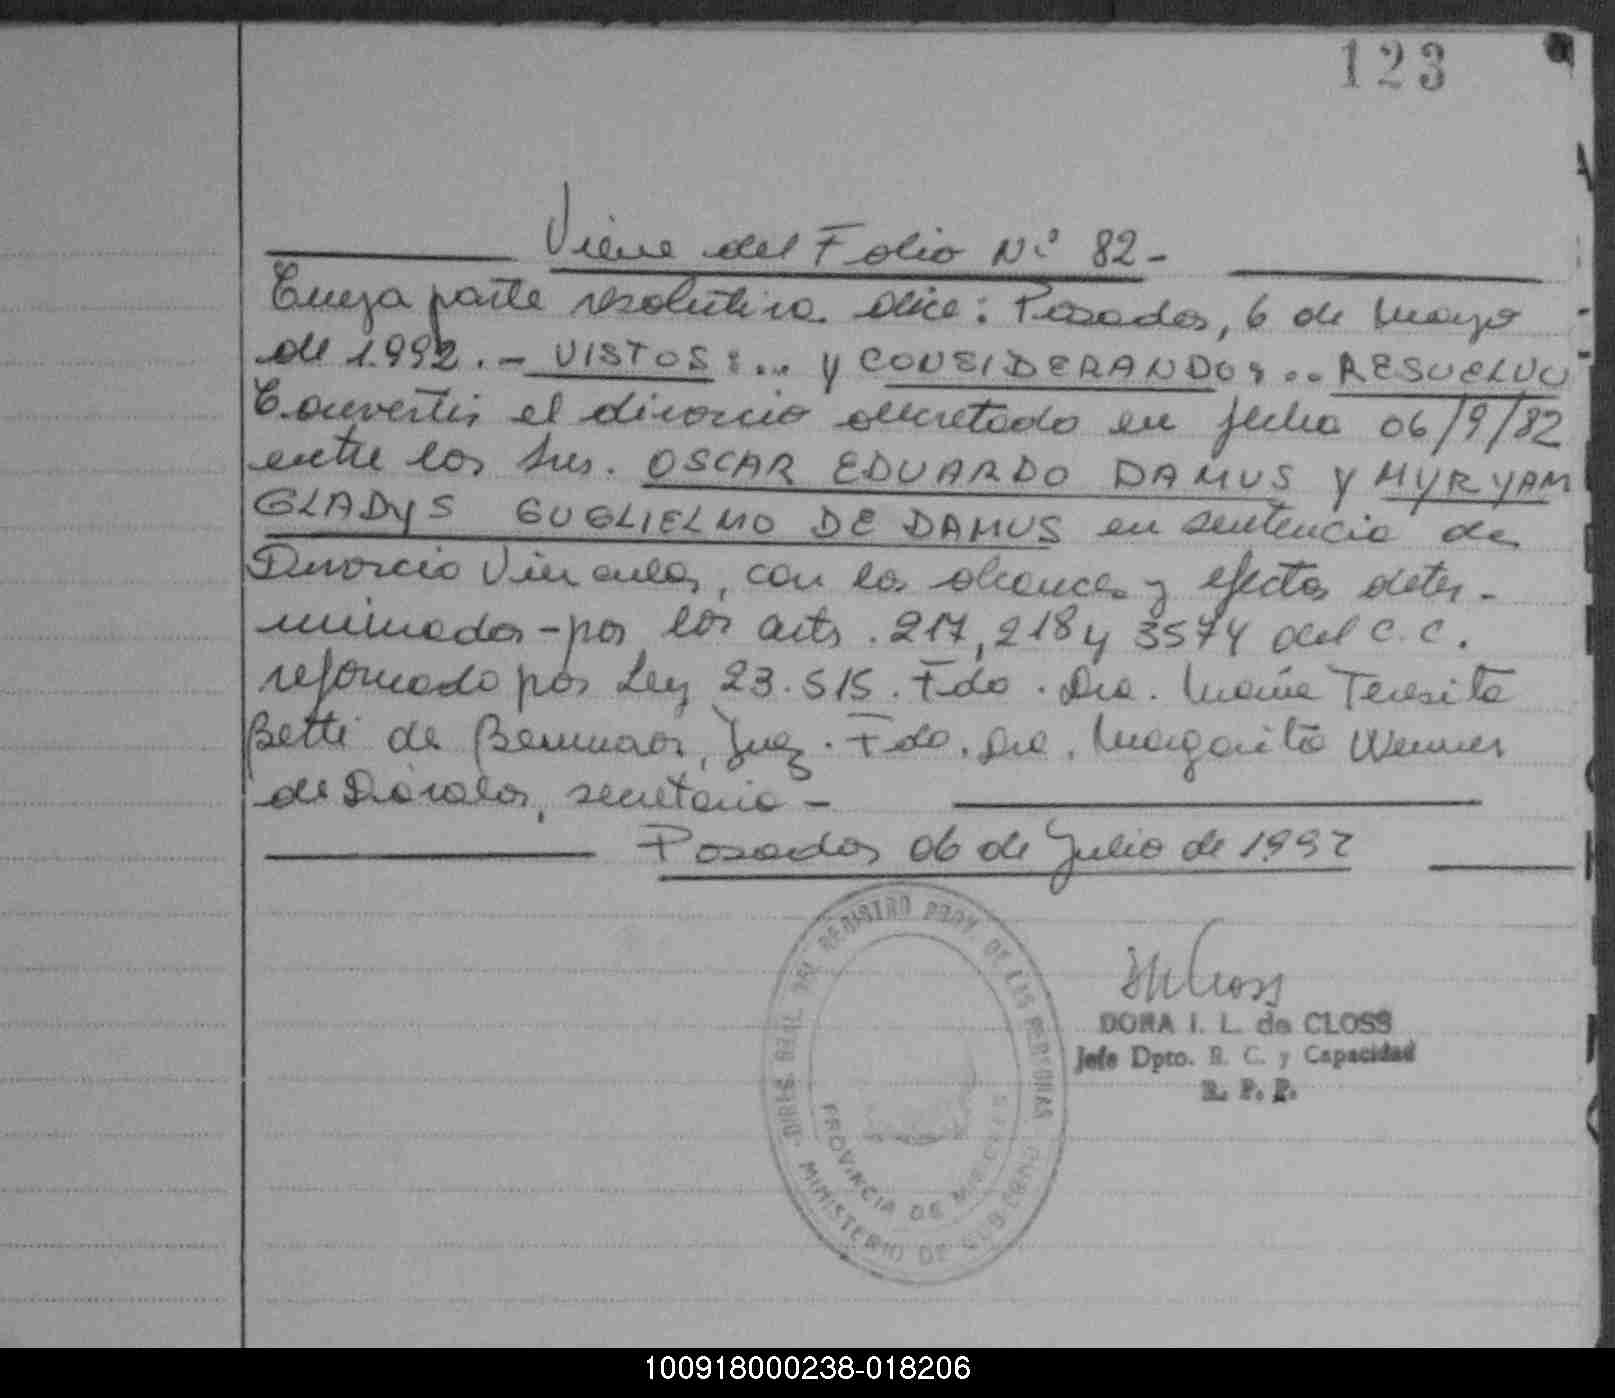 123
Viene del Folio Nº 82-
Cuya parte resolutiva dice: Posadas, 6 de Mayo
de 1.992.- VISTOS:... y CONSIDERANDO:... RESUELVO
Convertir el divorcio decretado en fecha 06/9/82
entre los Sres. OSCAR EDUARDO DAMUS y MYRYAM
GLADYS GUGLIELMO DE DAMUS en sentencia de
Divorcio Vincular, con los alcances y efectos deter-
minados-por los arts. 217, 218 y 3574 del C.C.
reformado por Ley 23.515. Fdo. Dra. María Teresita
Betti de , Juez. Fdo. Dra. Margarita
de Dávalos, secretaria-
Posadas 06 de Julio de 1992
DIREC. GRAL. DEL REGISTRO PROV. DE LAS PERSONAS
PROVINCIA DE MISIONES
MINISTERIO DE GOBIERNO
DORA I. L. de CLOSS
Jefe Dpto. E. C. y Capacidad
R. P. P.
100918000238-018206